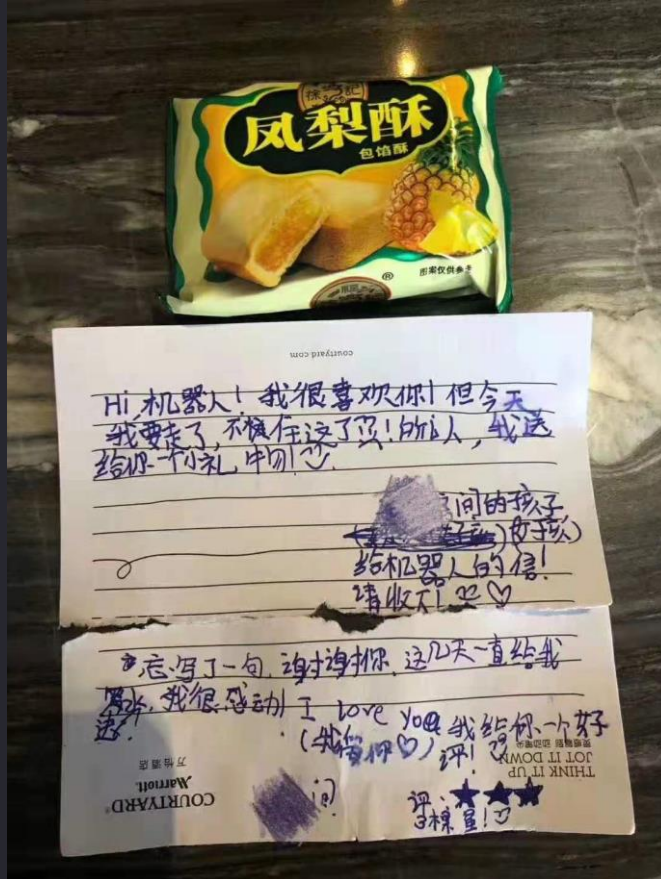 徐 記
凤梨酥
包馅酥
®
图案仅供参考
courtyard.com
Hi,机器人!我很喜欢你!但今天
我要走了,不 住这了! 人,我送
给你一个小礼物!
间的孩子
(女孩)
给机器人的信!
请收下!♡
忘写了一句,谢谢你,这几天一直给我
送水,我很感动! I love you 我给你一个好
(我爱你♡) 评!
THINK IT UP
JOT IT DOWN
COURTYARD®
Marriott
万怡酒店
间
评:★★★
3棵星!